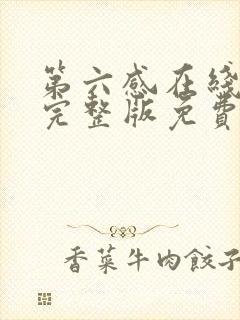 第六感在线
完整版免費
香菜牛肉餃子